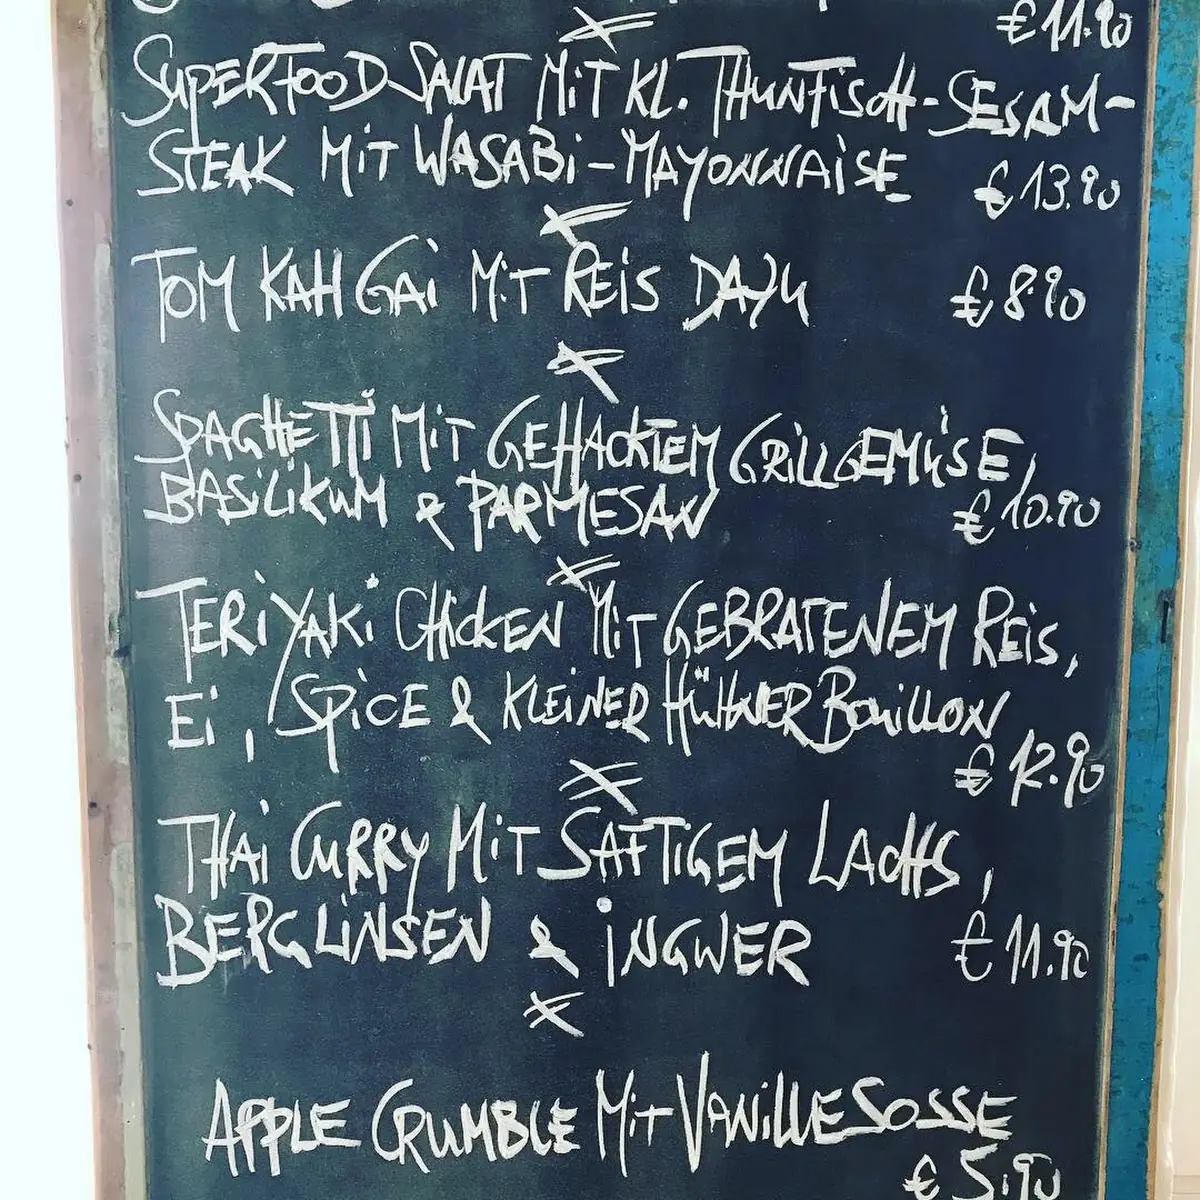 € 11.90
SUPERFOOD SALAT MIT KL. THUNFISCH-SESAM-
STEAK MIT WASABI-MAYONNAISE € 13.90
TOM KAH GAI MIT REIS DAZU € 8.90
SPAGHETTI MIT GEHACKTEM GRILLGEMÜSE,
BASILIKUM & PARMESAN € 10.90
TERIYAKI CHICKEN MIT GEBRATENEM REIS,
EI, SPICE & KLEINER HÜHNER BOUILLON
€ 12.90
THAI CURRY MIT SAFTIGEM LACHS,
BERGLINSEN & INGWER € 11.90
APPLE CRUMBLE MIT VANILLESOSSE
€ 5.90